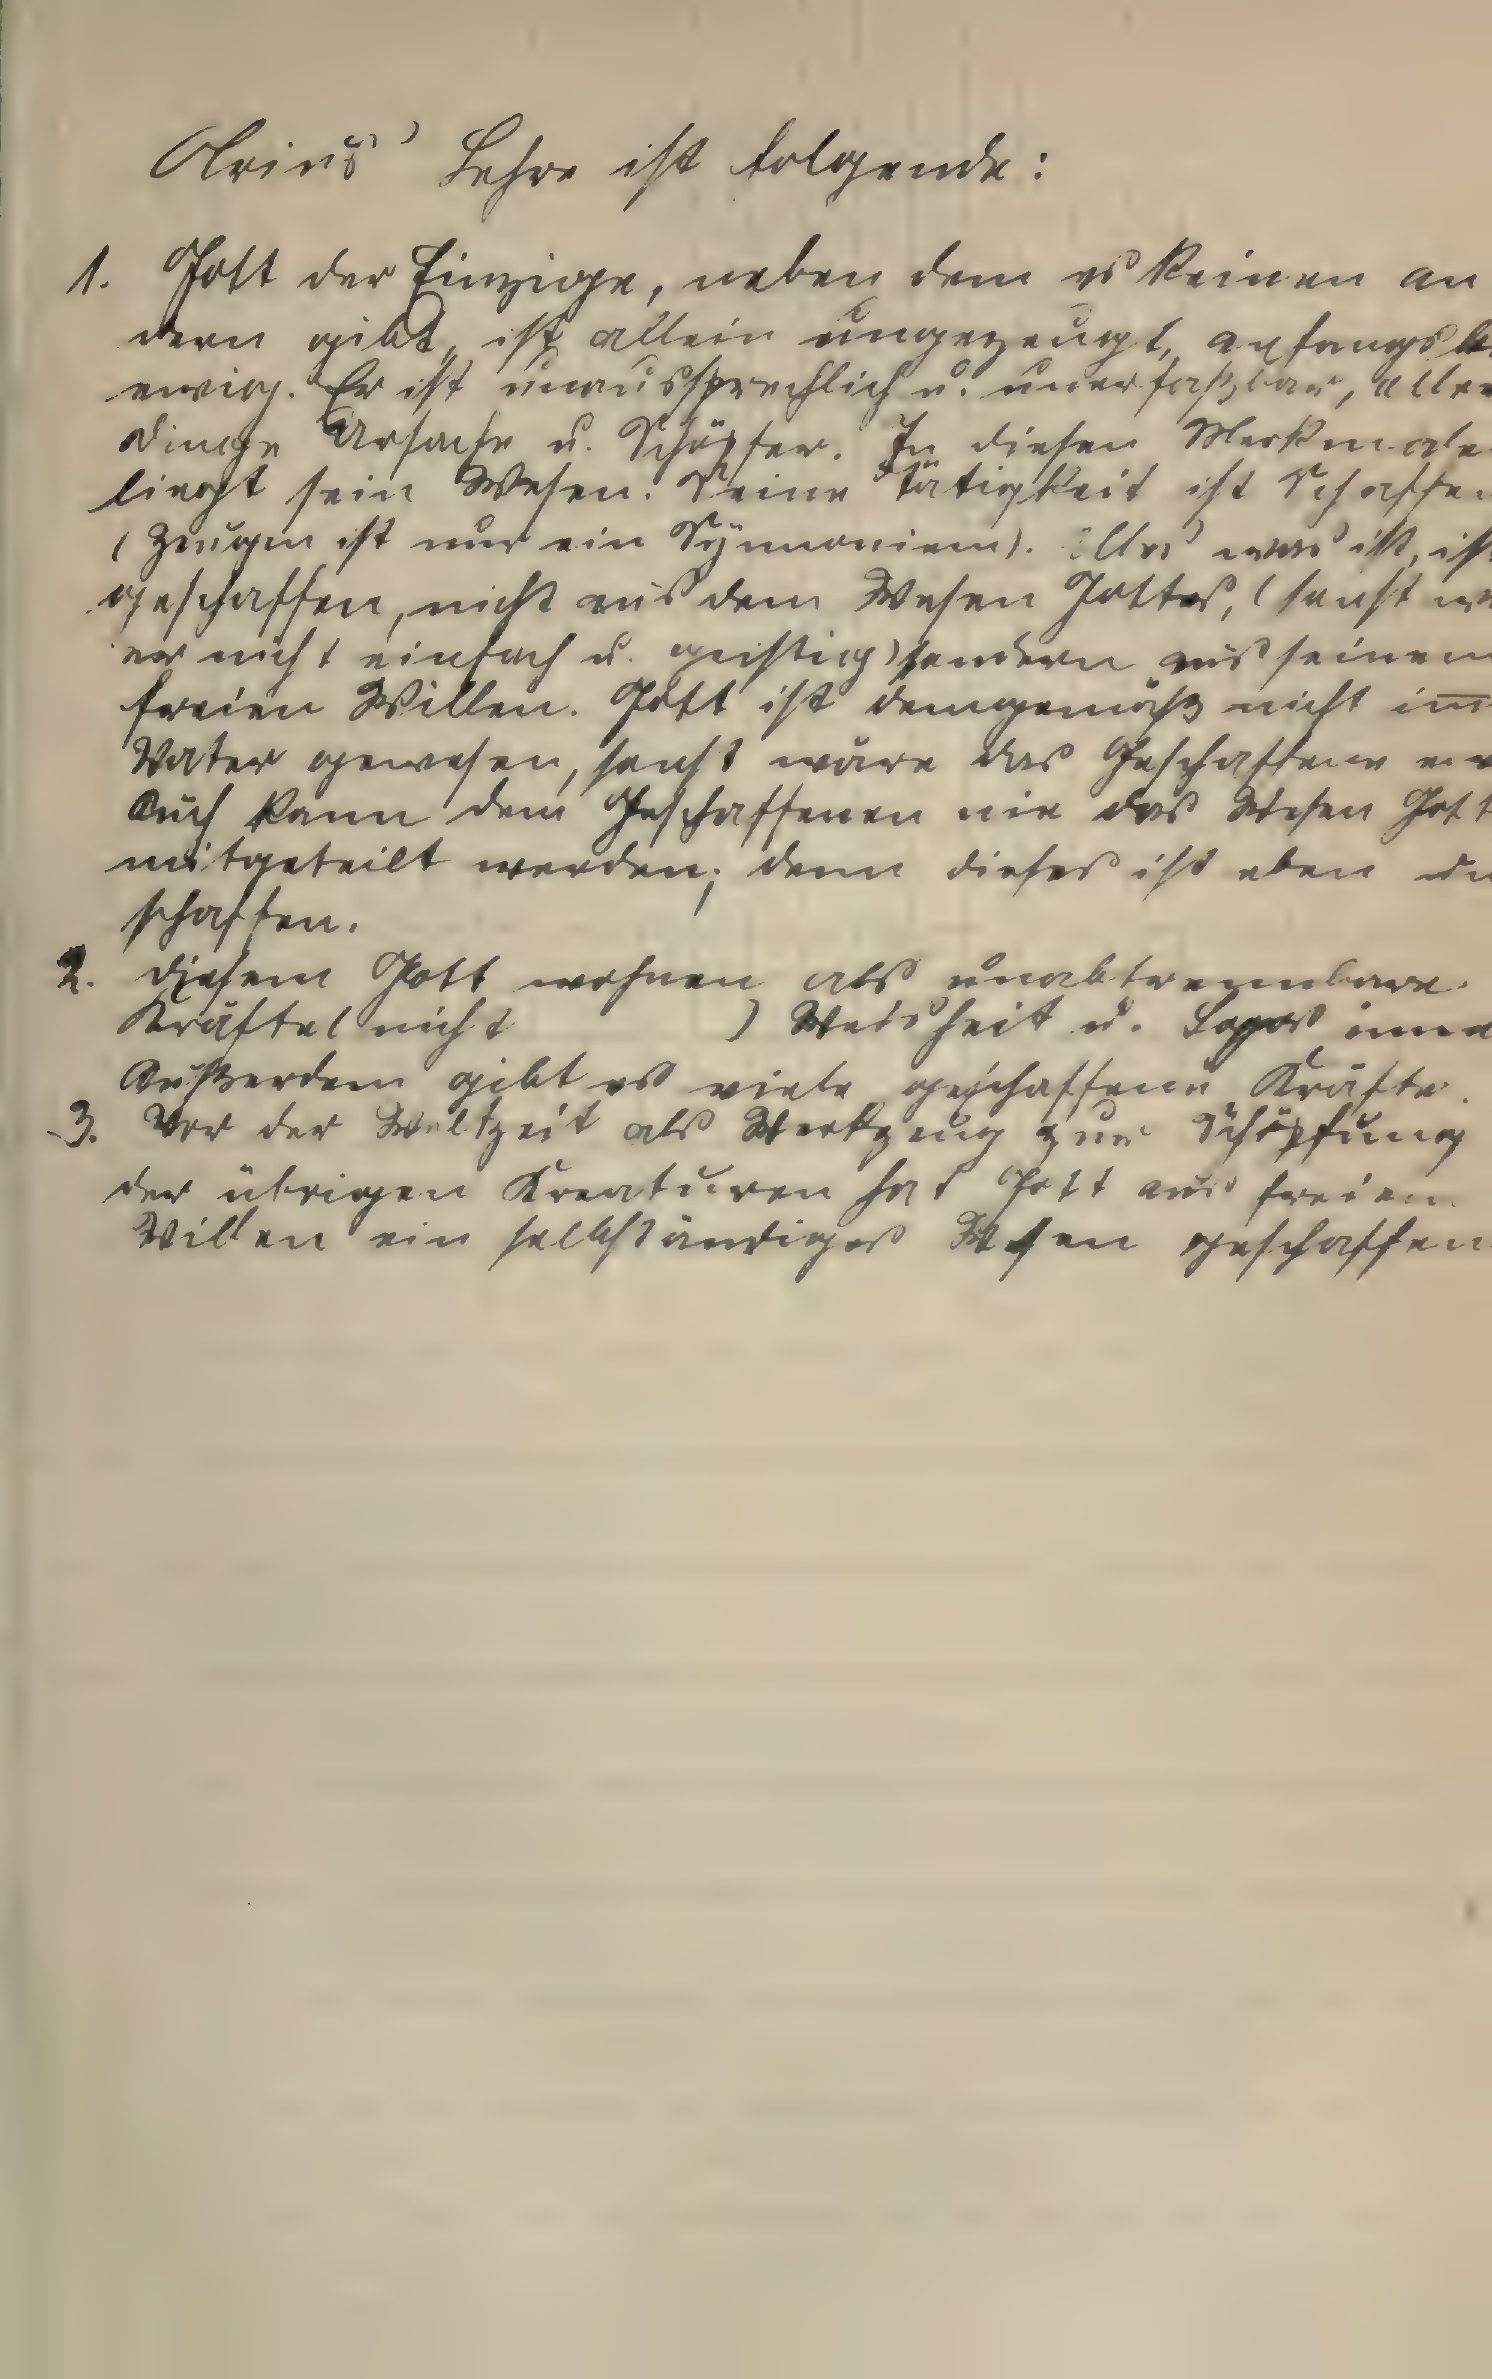 Arius' Lehre ist folgende:
1. Gott der Einzige, neben dem es keinen an
dern gibt, ist allein ungezeugt, anfangsl
ewig. Er ist unaussprechlich u. unerfaßbar, aller
Dinge Ursache u. Schöpfer. In diesen Merkmale
liegt sein Wesen. Seine Tätigkeit ist Schaffen
(Zeugen ist nur ein Synnoniem). Alles was ist, ist
geschaffen, nicht aus dem Wesen Gottes, (sonst w
er nicht einfach u. geistig) sondern aus seinem
freien Willen. Gott ist demgemäß nicht im
Vater gewesen, sonst wäre das Geschaffene ew
Auch kann dem Geschaffenen nie das Wesen Gott
mitgeteilt werden; denn dieses ist eben un
schaffen.
2. diesem Gott wohnen als unabtrennbare
Kräfte (nicht ) Weisheit u. Logos inne
Außerdem gibt es viele geschaffene Kräfte.
3. Vor der Weltzeit als Werkzeug zur Schöpfung
der übrigen Kreaturen hat Gott aus freien
Willen ein selbständiges Wesen geschaffen